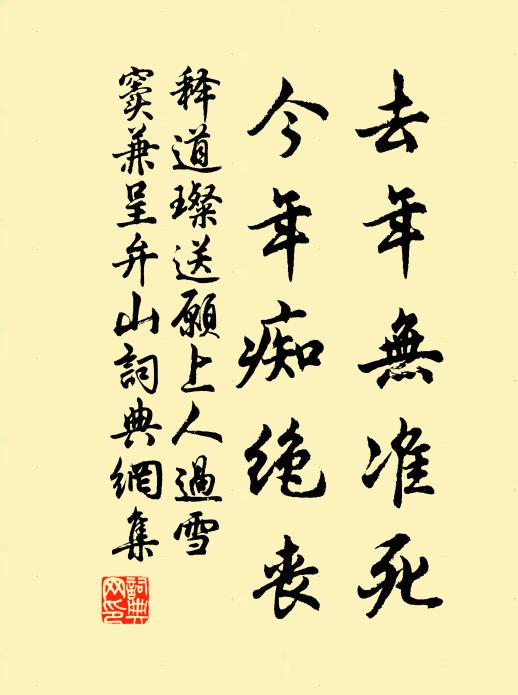 去年無准死
今年痴绝丧
释道璨送願上人過雪
窦兼呈弁山詞典網集
詞典网印